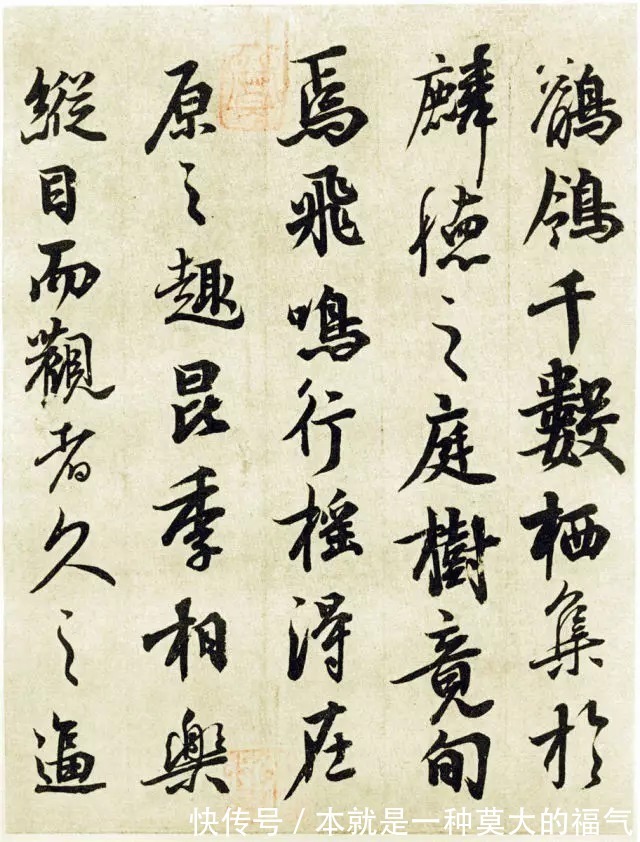 鶺鴒千數栖集於
麟德之庭樹竟旬
焉飛鳴行摇得在
原之趣昆季相樂
縱目而觀者久之逼
快传号/本就是一种莫大的福气